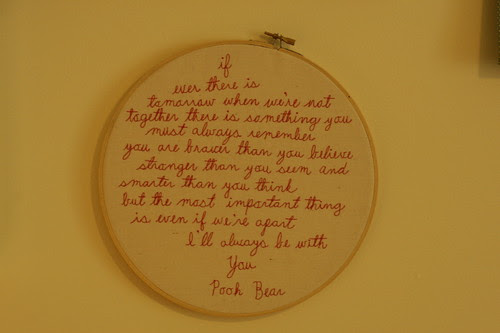 if
ever there is
tomorrow when we're not
together there is something you
must always remember
you are braver than you believe
stronger than you seem and
smarter than you think
but the most important thing
is even if we're apart
I'll always be with
You
Pooh Bear